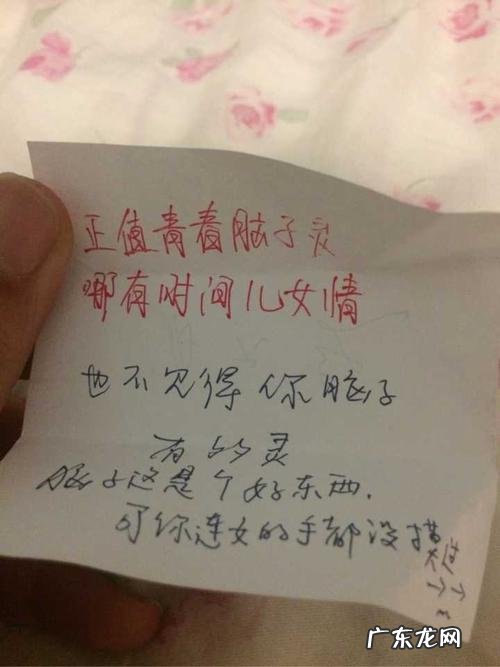 正值青春脑子灵
哪有时间儿女情
也不见得你脑子
有多灵
脑子这是个好东西.
可你连女的手都没摸过
→→
广东龙网